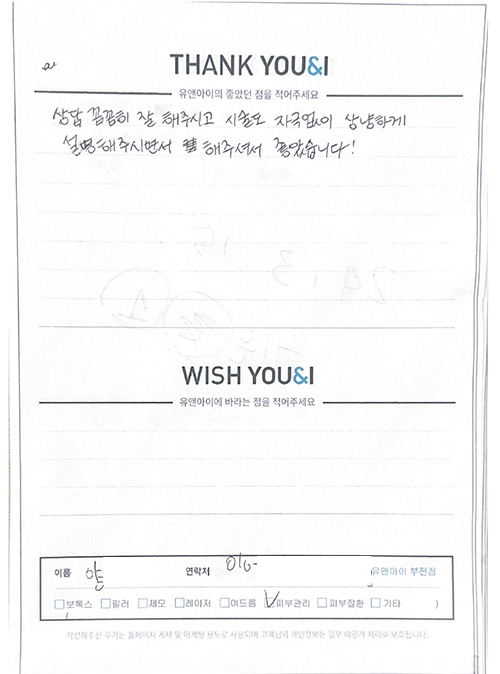 THANK YOU&I
유앤아이의 좋았던 점을 적어주세요
상담 꼼꼼히 잘 해주시고 시술도 자극없이 상냥하게
설명해주시면서 해주셔서 좋았습니다!
WISH YOU&I
유앤아이에 바라는 점을 적어주세요
이름 양 연락처 010- 유앤아이 부천점
보톡스 필러 제모 레이저 여드름 피부관리 피부질환 기타 )
작성해주신 후기는 홈페이지 게재 및 마케팅 용도로 사용되며 고객님의 개인정보는 일부 비공개 처리로 보호됩니다.